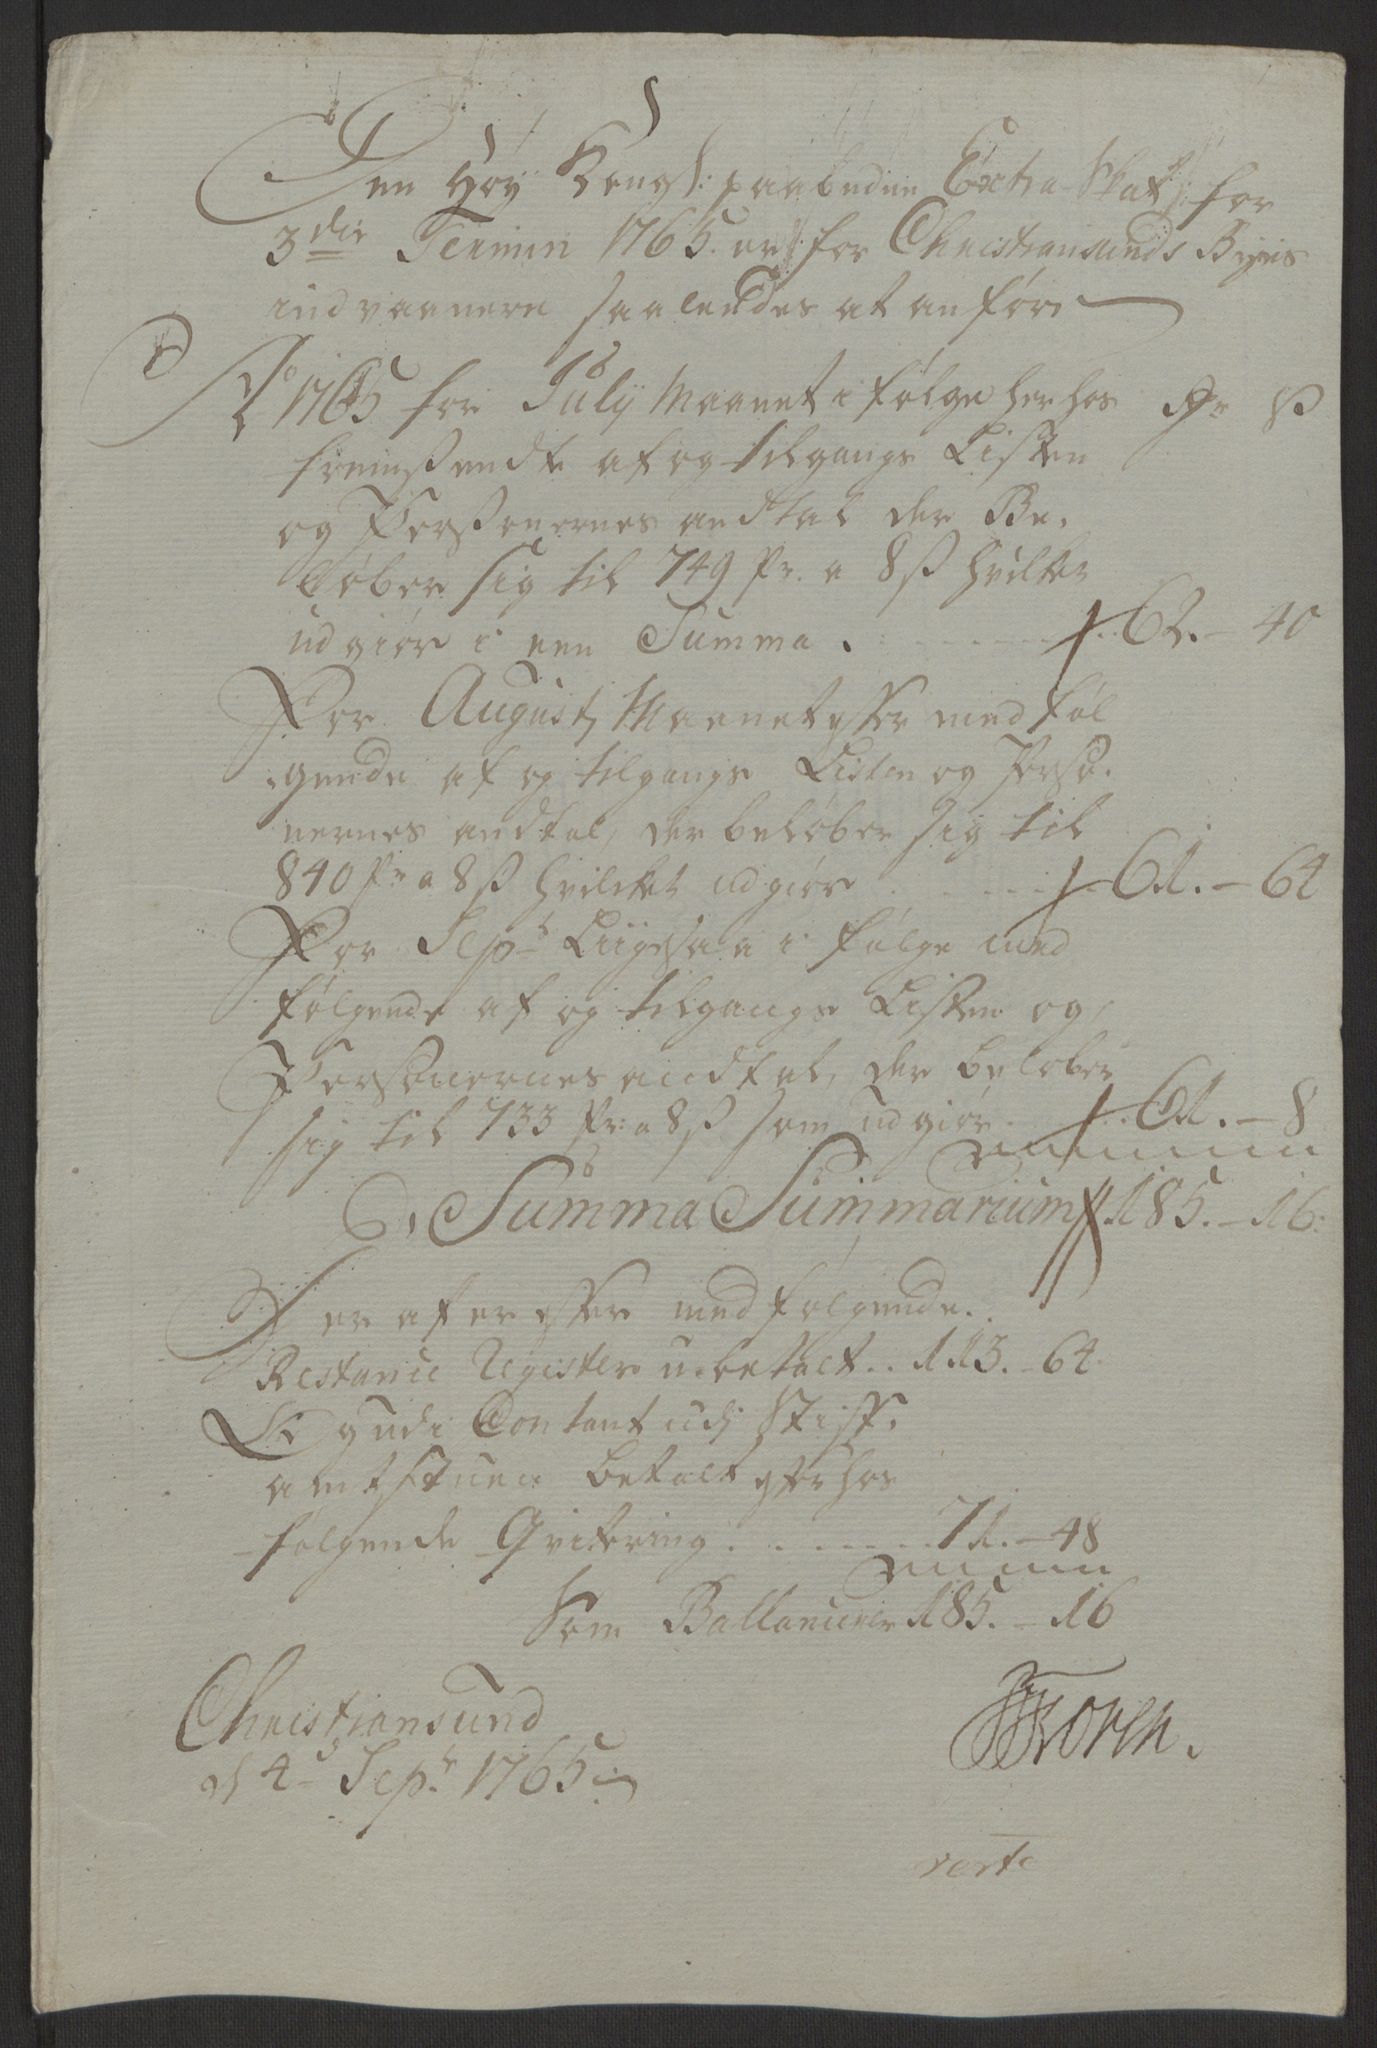 Den Høy Kongl: paabudne Extra Skat for
3die Termin 1765. er for Christiansunds Byes
indvaanere saaledes at anføre
Ao 1765 for July Maanet i følge her hos rdr ß
fremsendte af og tilgangs Listen
og Personernes andtal der Be,
løber sig til 749 Pr. a 8 ß hvilket
udgiør i een Summa . 62. - 40
For August Maanet efter med føl
gende af og tilgangs Listen og Perso,
nernes andtal, der beløber sig til
840 Pr a 8 ß hvilcket udgiør 61. - 64
For Sepr Liigesaa i følge med
følgende af og tilgangs Listen og
Personernes andtal, der beløber
sig til 733 Pr: a 8 ß som udgiør 61. - 8
Summa Summarium 185. - 16.
Her af er efter medfølgende
Restance Register u-betalt . . 113. - 64
Og udi Contant udj Stift,
amtstuen betalt efter hos
følgende Qvitering . . . . 71. - 48
Som Ballancerer 185. - 16
Christiansund
d 4 Sepr 1765
Koren.
verte